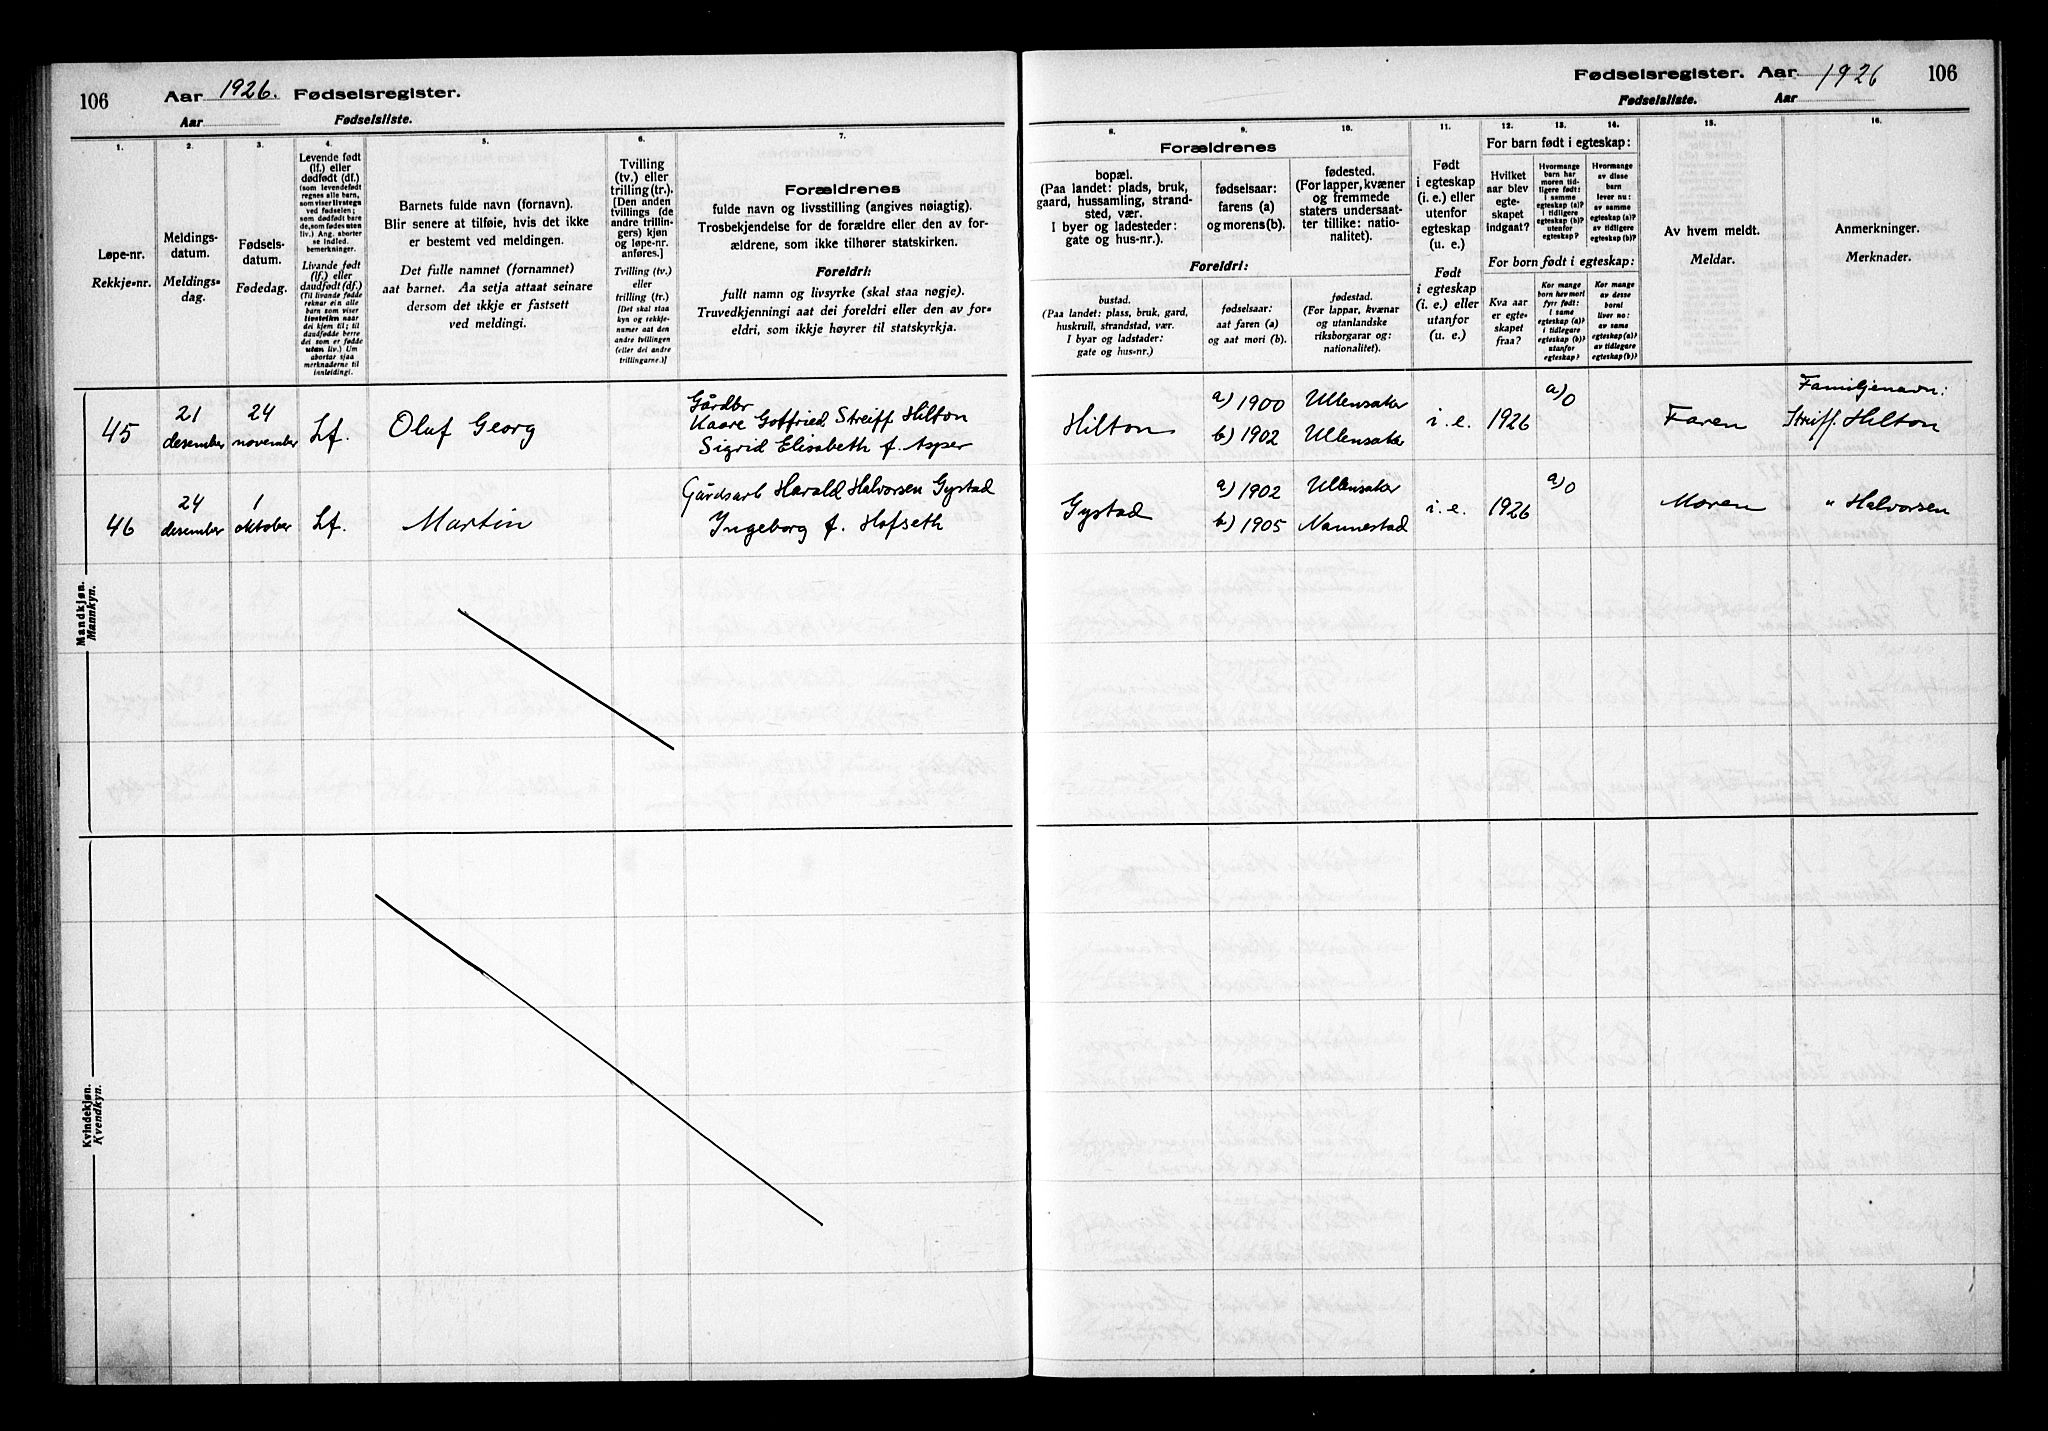 106
Aar 1926. Fødselsregister.
Aar Fødselsliste.
Fødselsregister. Aar 1926 106
Fødselsliste. Aar
1. 2. 3. 4. 5. 6. 7.
Løpe-nr.
Rekkje-nr.
Meldings-
datum.
Meldings-
dag.
Fødsels-
datum.
Fødedag.
Levende født
(lf.) eller
dødfødt (df.)
(som levendefødt
regnes alle barn,
som viser livstegn
ved fødselen;
som dødfødt bare
de, som fødes uten
liv.) Ang. aborter
se indled.
bemerkninger.
Livande født
(lf.) eller
daudfødt (df.)
(Til livande fødde
reknar ein alle
barn som viser
livsteikn naar
dei kjem til; til
daudfødde berre
dei som er fødde
utan liv.) Um
abortar sjaa
merknaderne til
innleidingi.
Barnets fulde navn (fornavn).
Blir senere at tilføie, hvis det ikke
er bestemt ved meldingen.
Det fulle namnet (fornamnet)
aat barnet. Aa setja attaat seinare
dersom det ikkje er fastsett
ved meldingi.
Tvilling
(tv.) eller
trilling (tr.).
[Den anden
tvillings (de
andre trillin-
gers) kjøn
og løpe-nr.
anføres.]
Tvilling (tv.)
eller
trilling (tr.)
[Det skal staa
kyn og rekkje-
numer aat den
andre tvillingen
(eller dei andre
trillingarne.)]
Forældrenes
fulde navn og livsstilling (angives nøiagtig).
Trosbekjendelse for de forældre eller den av for-
ældrene, som ikke tilhører statskirken.
Foreldri:
fullt namn og livsyrke (skal staa nøgje).
Truvedkjenningi aat dei foreldri eller den av for-
eldri, som ikkje høyrer til statskyrkja.
8. 9. 10. 11. 12. 13. 14. 15. 16.
Forældrenes
bopæl.
(Paa landet: plads, bruk,
gaard, hussamling, strand-
sted, vær.
I byer og ladesteder:
gate og hus-nr.).
fødselsaar:
farens (a)
og morens (b).
fødested.
(For lapper, kvæner
og fremmede
staters undersaat-
ter tillike: natio-
nalitet).
Foreldri:
bustad.
(Paa landet: plass, bruk, gard,
huskrull, strandstad, vær.
I byar og ladstader:
gate og hus-nr.)
fødselsaar:
aat faren (a)
og aat mori (b).
fødestad.
(For lappar, kvænar
og utanlandske
riksborgarar og:
nationalitet).
Født
i egteskap
(i. e.) eller
utenfor
egteskap
(u. e.)
Født
i egteskap
(i. e.) eller
utanfor
(u. e.)
For barn født i egteskap:
Hvilket
aar blev
egte-
skapet
indgaat?
Hvormange
barn har
moren tid-
ligere født:
i samme
egteskap (a)?
i tidligere
egteskap (b)?
utenfor
egteskap?
Hvormange
av disse
barn
lever nu:
av samme
egteskap (a)?
av tidligere
egteskap (b)?
For born født i egteskap:
Kva aar
er egte-
skapet
fraa?
Kor mange
born hev mori
fyrr født:
i same
egteskap (a)?
i tidlegare
egteskap (b)?
utanfor
egteskap?
Kor mange
av desse
borni
liver no:
av same
egteskap (a)?
av tidlegare
egteskap (b)?
Av hvem meldt.
Meldar.
Anmerkninger.
Merknader.
Mandkjøn.
Mannkyn.
45
21
desember
24
november
Lf.
Oluf Georg
Gårdbr
Kaare Gotfried Streiff Hilton
Sigrid Elisabeth f. Asper
Hilton
a) 1900 Ullensaker
b) 1902 Ullensaker
i. e. 1926 a) 0 Faren
Familjenavn:
Streiff Hilton
46
24
desember
1
oktober
Lf.
Martin
Gårdsarb Harald Halvorsen Gystad
Ingeborg f. Hofseth
Gystad
a) 1902 Ullensaker
b) 1905 Nannestad
i. e. 1926 a) 0 Moren
" Halvorsen
Kvindekjøn.
Kvendkyn.